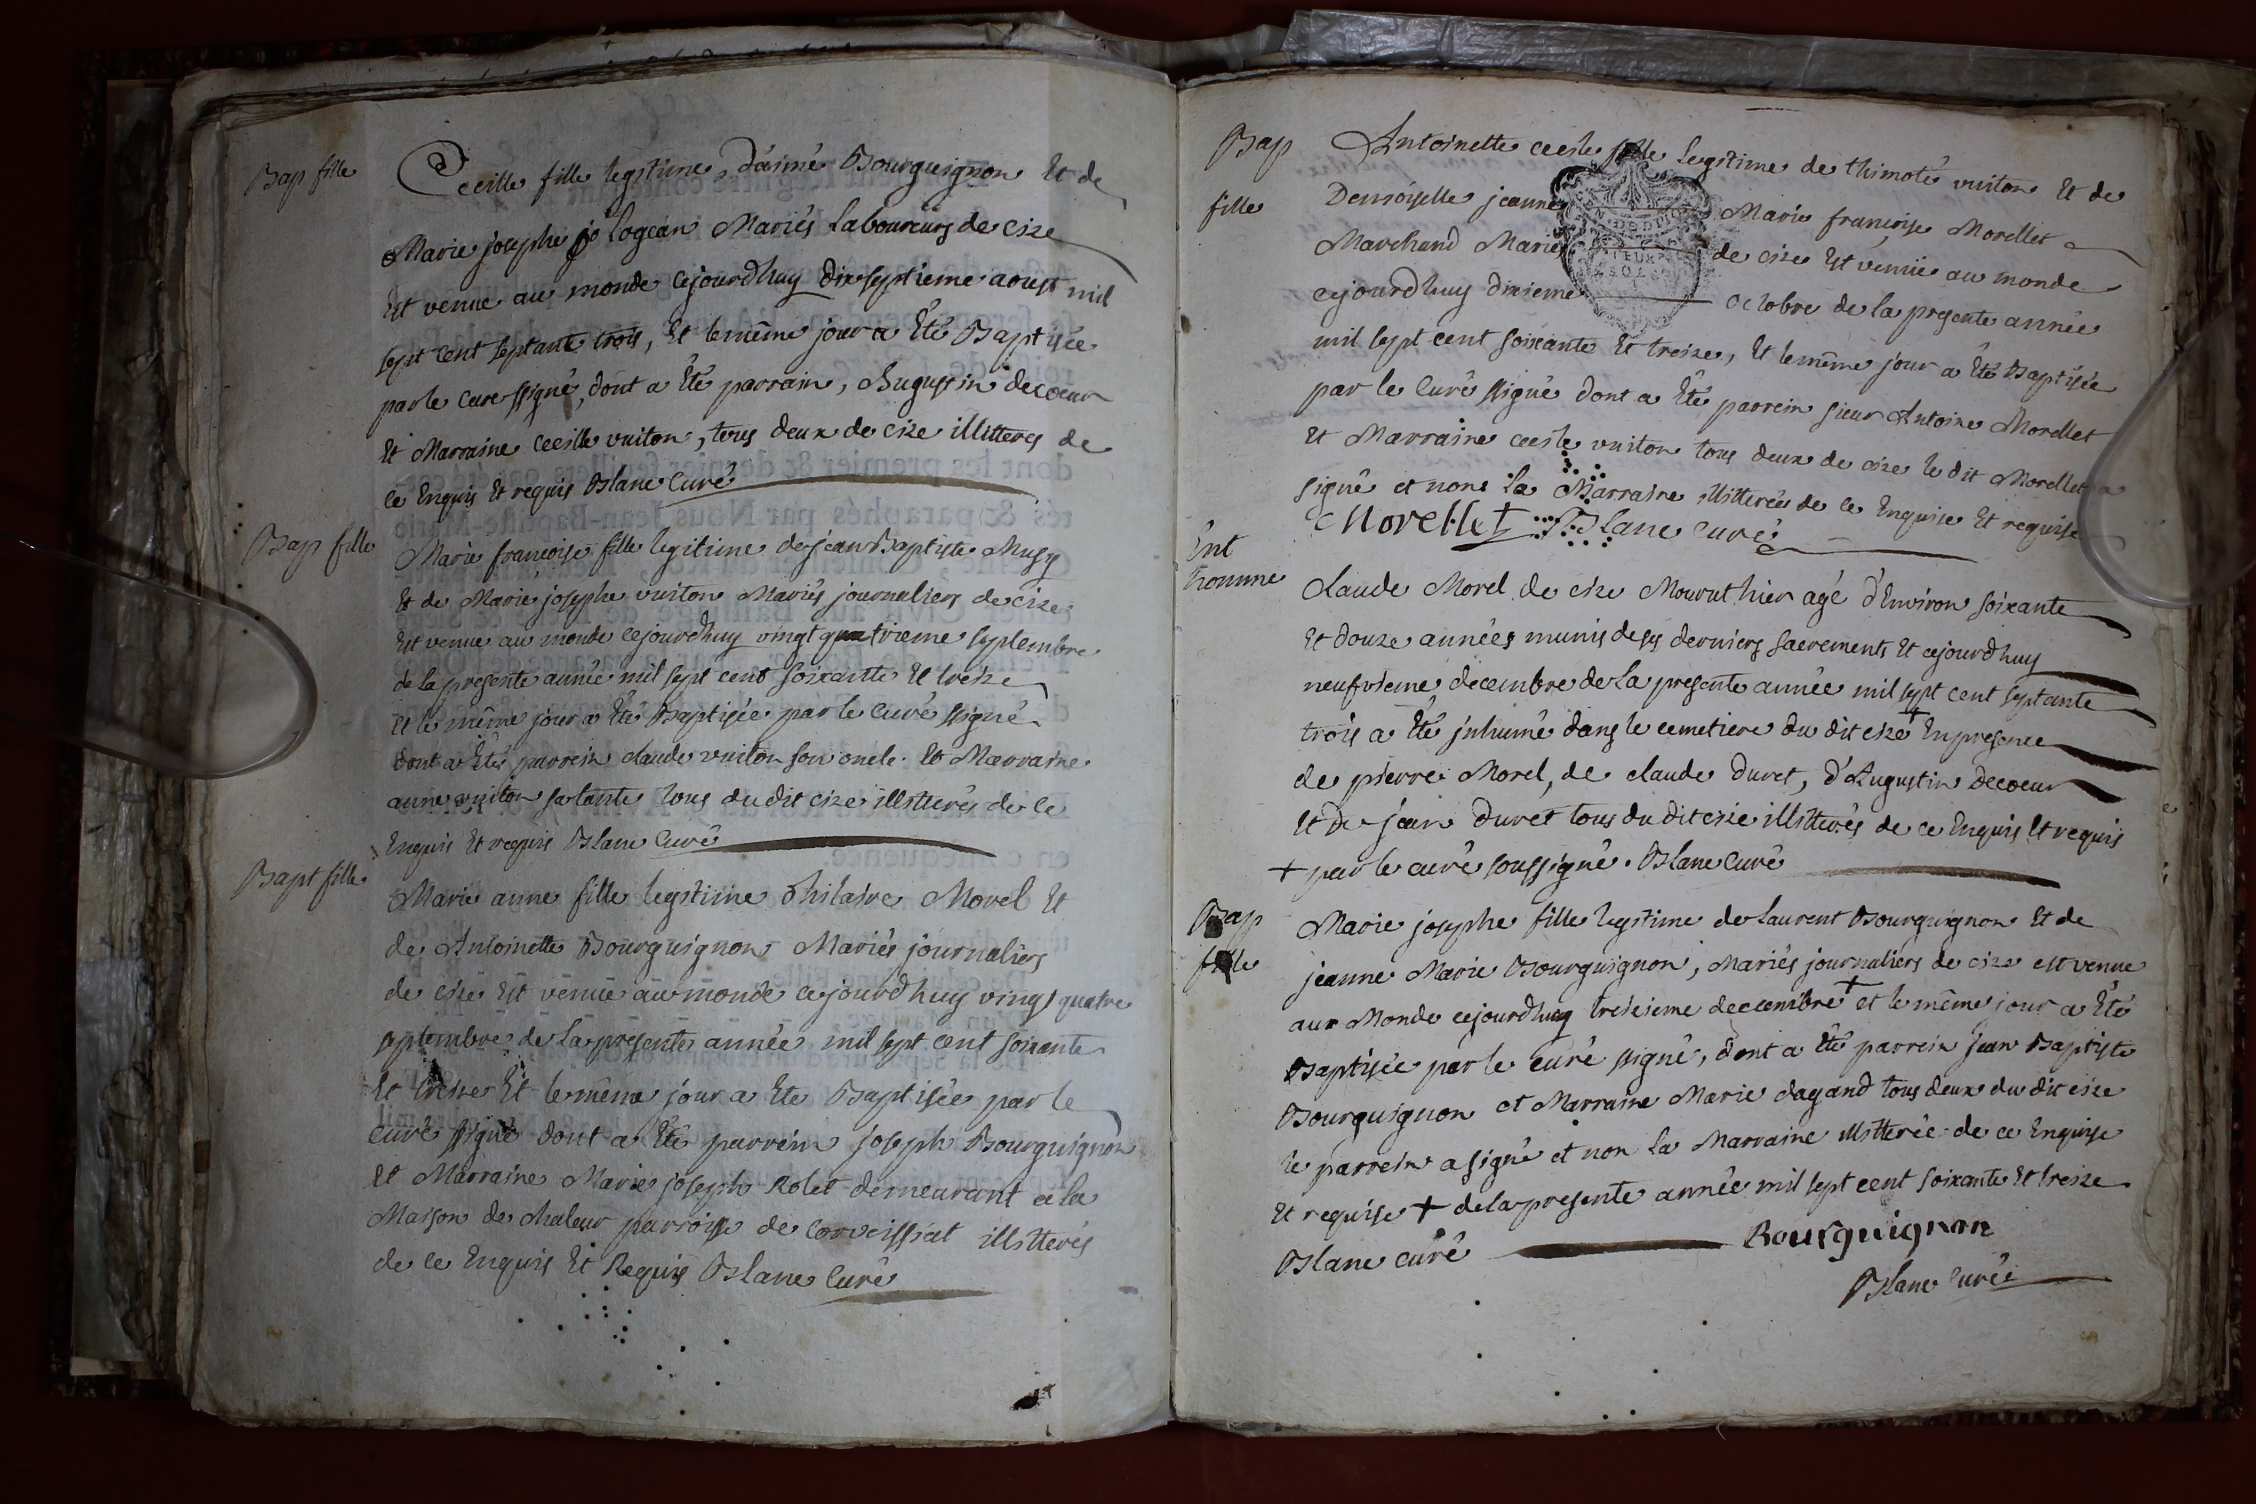 Bap fille
Cecille fille legitime d'aimé Bourguignon Et de
Marie josephe jo logean Mariés Laboureurs de cize
Est venue au monde cejourdhuy dixseptieme aoust mil
sept cent septante trois, Et le même jour a Eté Baptisée
par le curé ssigné, dont a Eté parrain, Augustin decoeur
Et Marraine Cecille vuiton, tous deux de cize illitterés de
ce Enquis Et requis Blanc Curé
Bap fille
Marie françoise fille legitime de jean Baptiste Musy
Et de Marie josephe vuiton Mariés journaliers de cize
Est venue au monde cejourdhuy vingt quatrieme septembre
de la presente année mil sept cent soixante Et treize
Et le même jour a Eté Baptisée par le Curé ssigné
dont a Eté parrein claude vuiton son oncle Et Marraine
anne vuiton sa tante tous du dit cize illitterés de ce
Enquis Et requis Blanc Curé
Bapt fille
Marie anne fille legitime d'hilaire Morel Et
de Antoinette Bourguignon Mariés journaliers
de cize Est venue au monde cejourdhuy vingt quatre
septembre de la presente année mil sept cent soixante
Et treize Et le même jour a Eté Baptisée par le
curé ssigné dont a Eté parrein joseph Bourguignon
Et Marraine Marie joseph Rolet demeurant a la
Maison de chaleur parroisse de corveissiat illitterés
de ce Enquis Et Requis Blanc Curé
Bap
fille
Antoinette cecile fille legitime de thimoté vuiton Et de
Demoiselle jeanne Marie françoise Morellet
Marchand Mariés de cize Est venüe au monde
cejourdhuy dixieme octobre de la presente année
mil sept cent soixante Et treize, Et le même jour a Eté Baptisée
par le Curé ssigné dont a Eté parrein sieur Antoine Morellet
Et Marraine cecile vuiton tous deux de cize le dit Morellet a
signé et non la Marraine illitterée de ce Enquise Et requise
Morellet Blanc curé
Ent
homme
Claude Morel de cize Mouruthier agé d'Environ soixante
Et douze années munis de ses derniers sacrements Et cejourdhuy
neufvieme decembre de la presente année mil sept cent septante
trois a Eté jnhumé dans le cemetiere du dit cize + En presence
de pierre Morel, de claude Duret, d'Augustin Decoeur
Et De jean Duret tous du dit cize illitterés de ce Enquis Et requis
+ par le curé soussigné. Blanc Curé
Bap
fille
Marie josephe fille legitime de Laurent Bourguignon Et de
jeanne Marie Bourguignon, Mariés journaliers de cize est venue
aux Monde cejourdhuy treisieme deccembre + et le même jour a Eté
Baptisée par le curé ssigné, dont a Eté parrein jean Baptiste
Bourguignon et Marraine Marie dagand tous deux du dit cize
le parrein a signé et non la Marraine illitterée de ce Enquise
Et requise + de la presente année mil sept cent soixante Et treize
Blanc curé Bourguignon
Blanc Curé